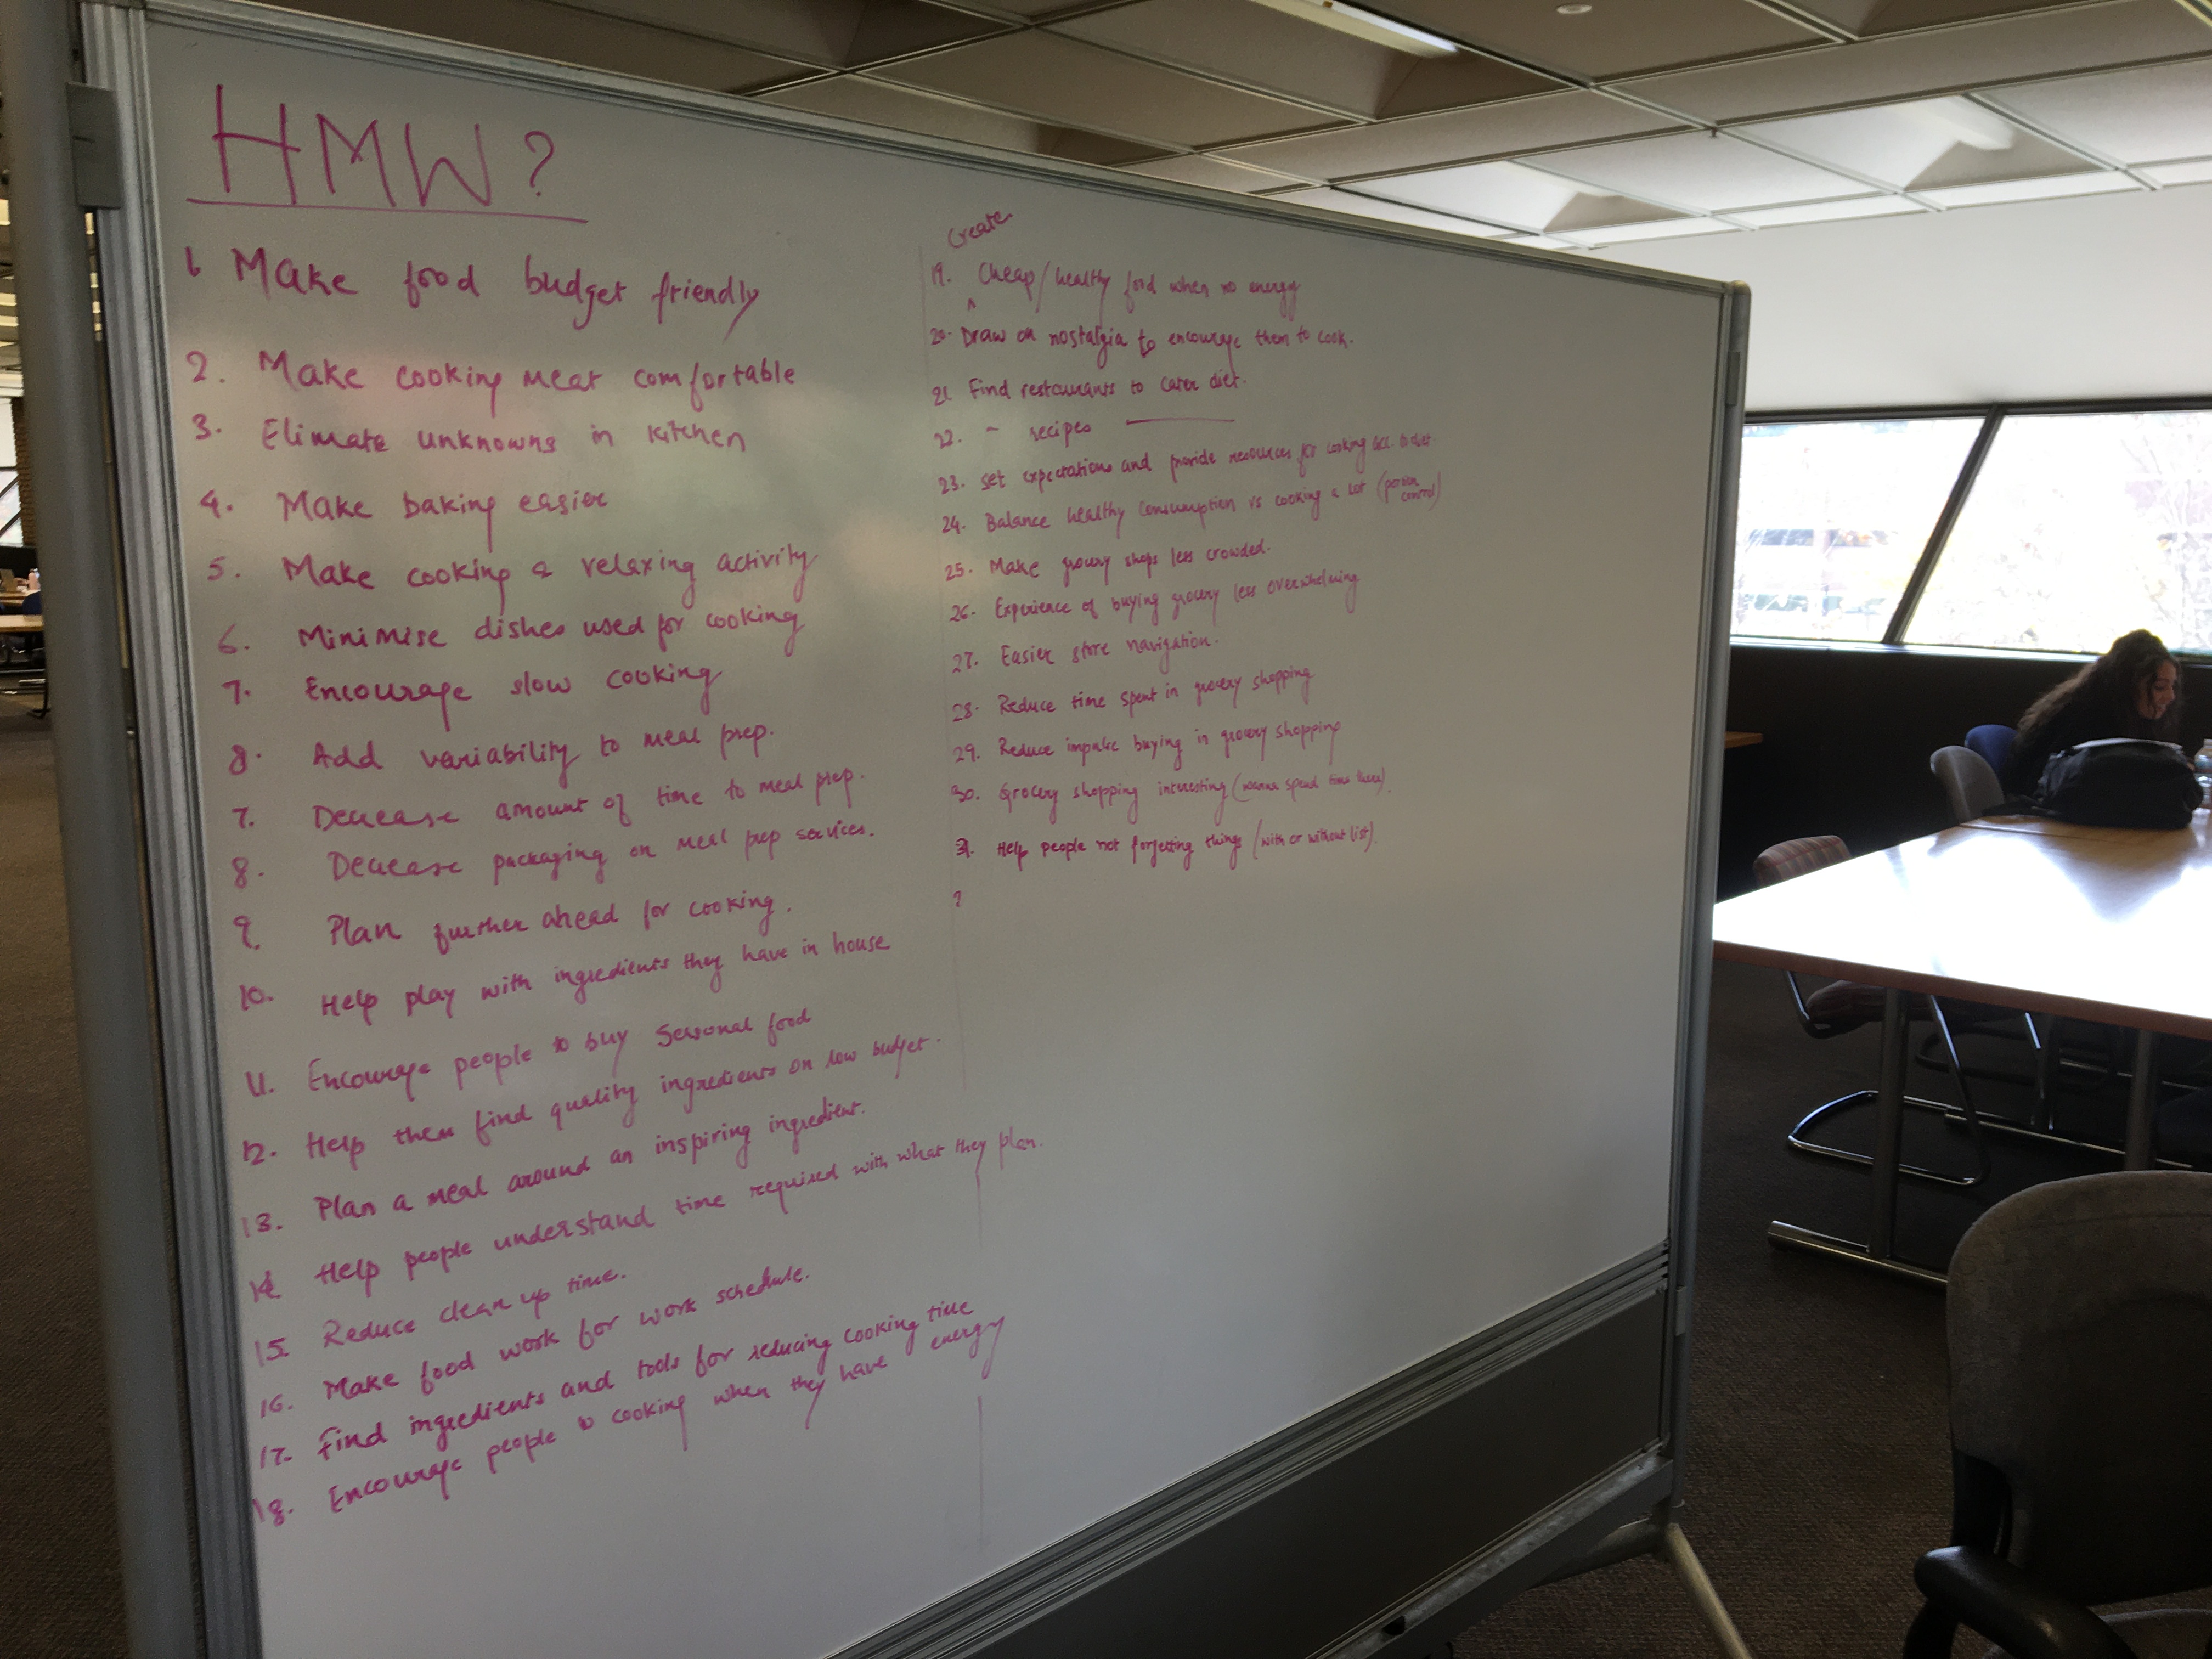 HMW?
1. Make food budget friendly
2. Make cooking meat comfortable
3. Elimate unknowns in kitchen
4. Make baking easier
5. Make cooking a relaxing activity
6. Minimise dishes used for cooking
7. Encourage slow cooking
8. Add variability to meal prep.
7. Decrease amount of time to meal prep.
8. Decrease packaging on meal prep services.
9. Plan further ahead for cooking.
10. Help play with ingredients they have in house
11. Encourage people to buy seasonal food
12. Help them find quality ingredients on low budget.
13. Plan a meal around an inspiring ingredient.
14. Help people understand time required with what they plan.
15. Reduce clean up time.
16. Make food work for work schedule.
17. Find ingredients and tools for reducing cooking time
18. Encourage people to cooking when they have energy
Create
19. ^ Cheap/healthy food when no energy
20. Draw on nostalgia to encourage them to cook.
21. Find restaurants to cater diet.
22. ~ recipes ———
23. Set expectations and provide resources for cooking acc. to diet
24. Balance healthy consumption vs cooking a lot (portion control)
25. Make grocery shops less crowded.
26. Experience of buying grocery less overwhelming
27. Easier store navigation.
28. Reduce time spent in grocery shopping
29. Reduce impulse buying in grocery shopping
30. Grocery shopping interesting (wanna spend time there).
31. Help people not forgetting things (with or without list).
?